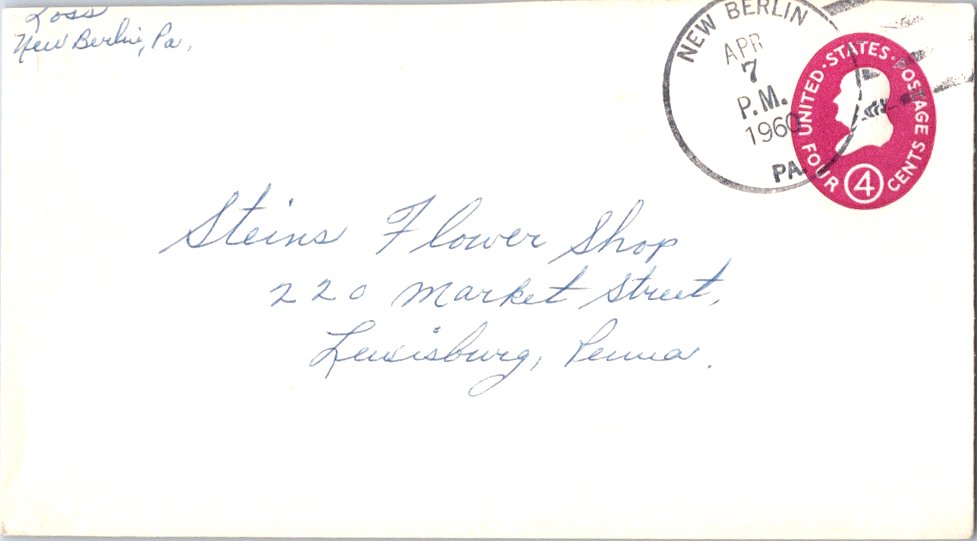 Loss
New Berlin, Pa.
NEW BERLIN
APR
7
P.M.
1960
PA.
UNITED·STATES·POSTAGE
FOUR 4 CENTS
Steins Flower Shop
220 Market Street,
Lewisburg, Penna.